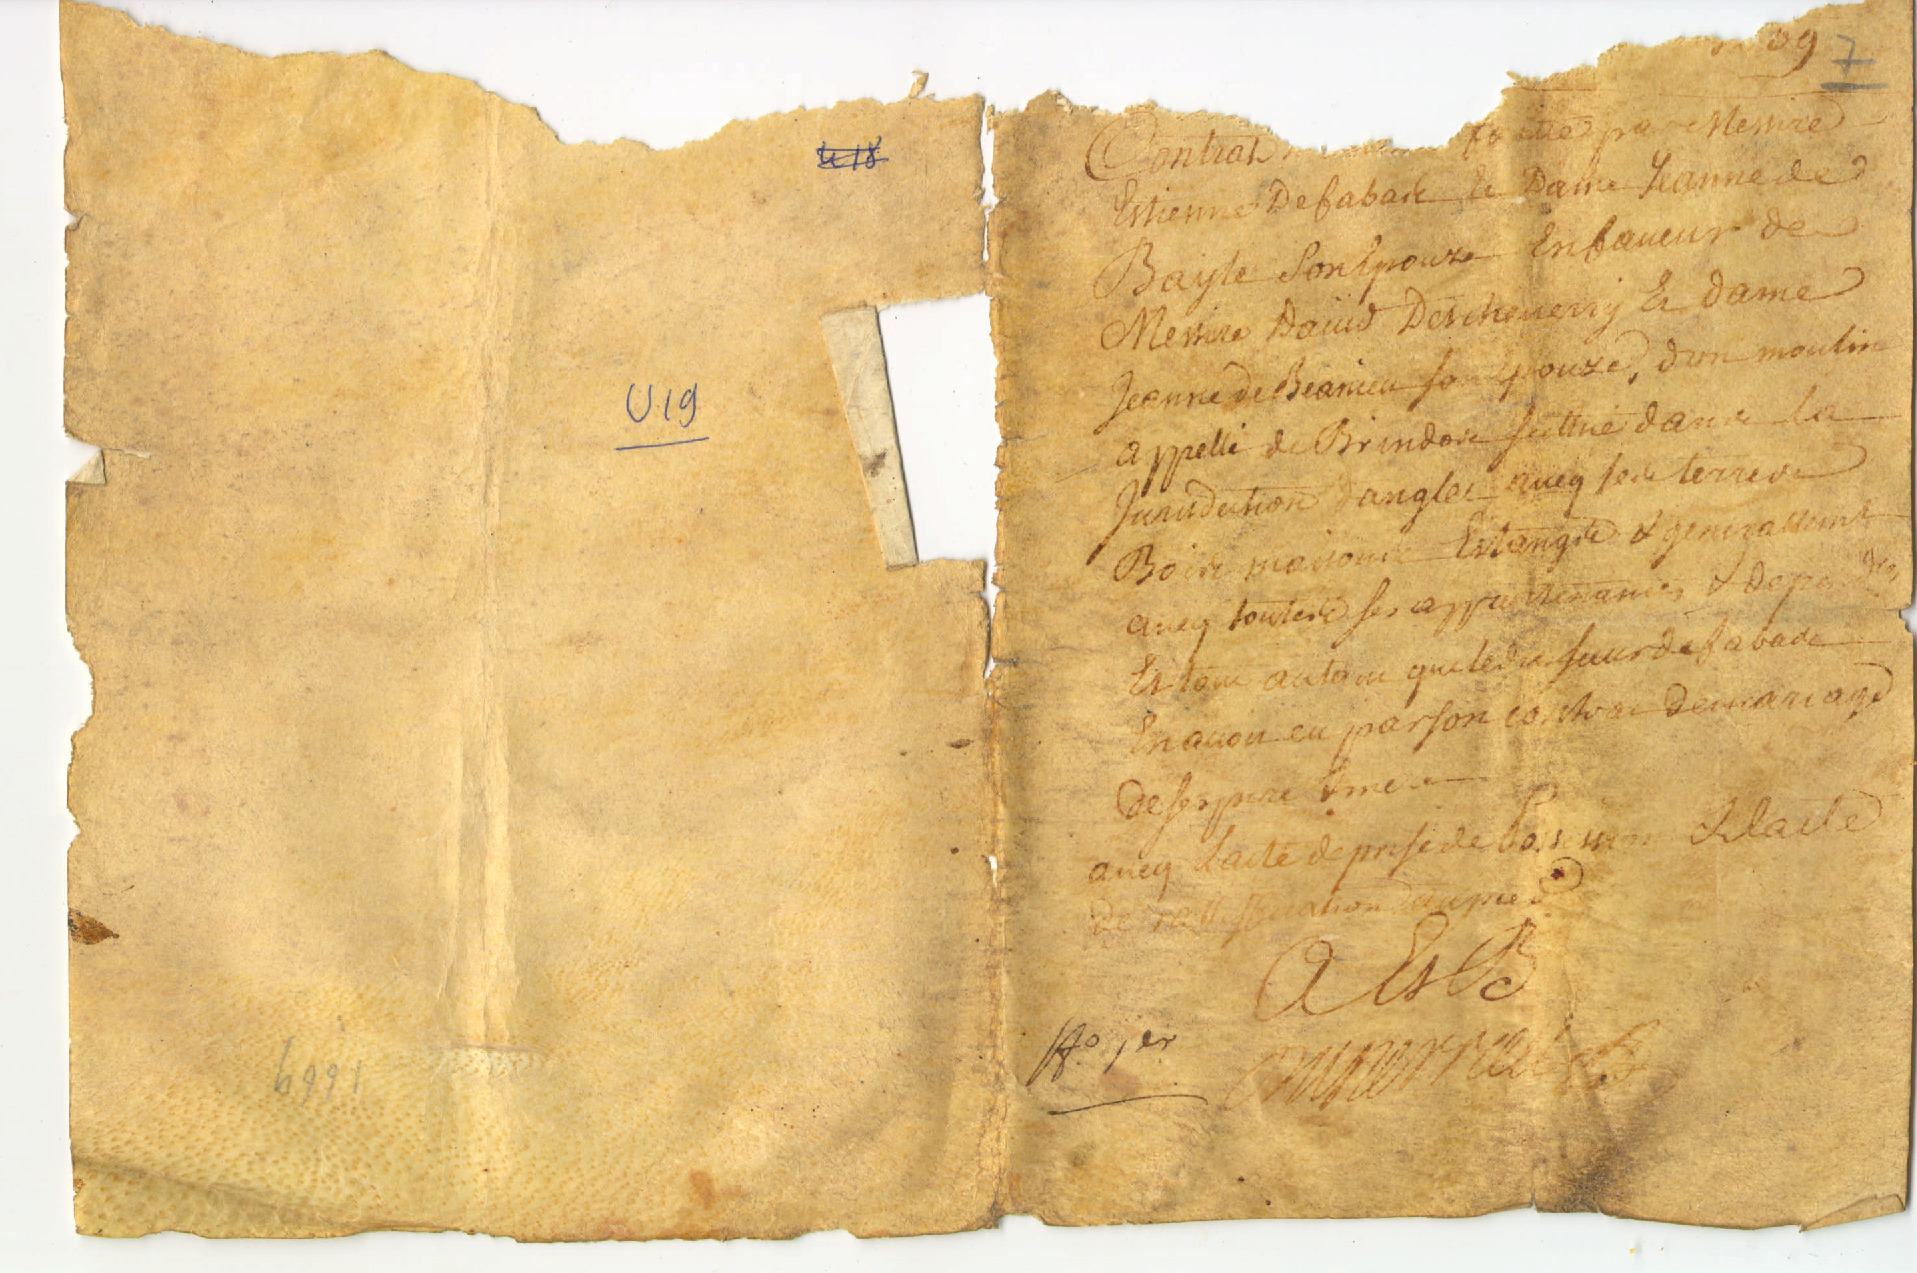 U18
U19
1669
39 7
Contrat faitte par Messire
Estienne Defabark Et Dame Jeanne de
Bayle Son Epouze En faueur de
Messire Dauid Descheuerry Et dame
Jeanne de Beanieu son Epouze, d'un moulin
appellé de Brindos scittué dans la
Jurisdiction danglet aueq ses terres
Bois maisons Estangs & generallement
aueq toutes ses appartenances & depandces
Et tout autant que ledit sieur defabark
En auoit eu par son contrat de mariage
de ses pere & mere
aueq l'acte de prise de possession & l'acte
de rattiffication au pied
A Et B
ffo. 1er